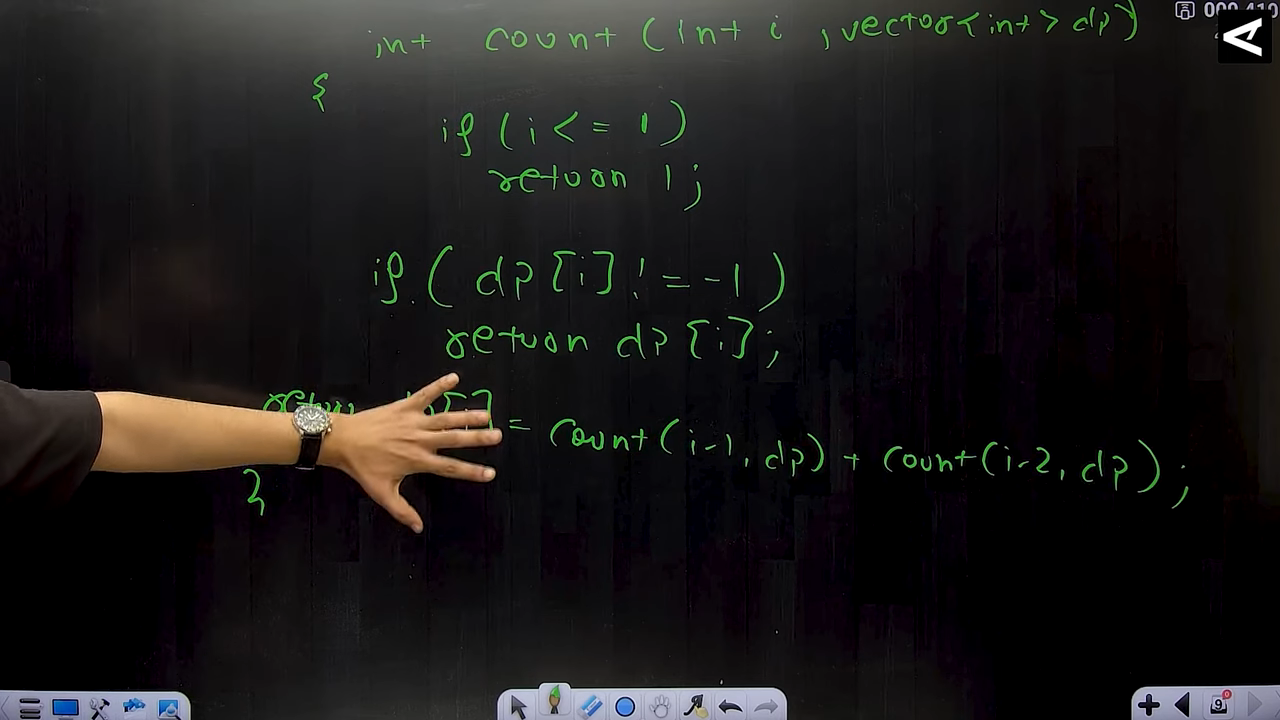 int count (int i , vector<int> dp)
{
if (i <= 1)
return 1;
if ( dp[i] != -1 )
return dp[i];
= count(i-1, dp) + count(i-2, dp);
}
9